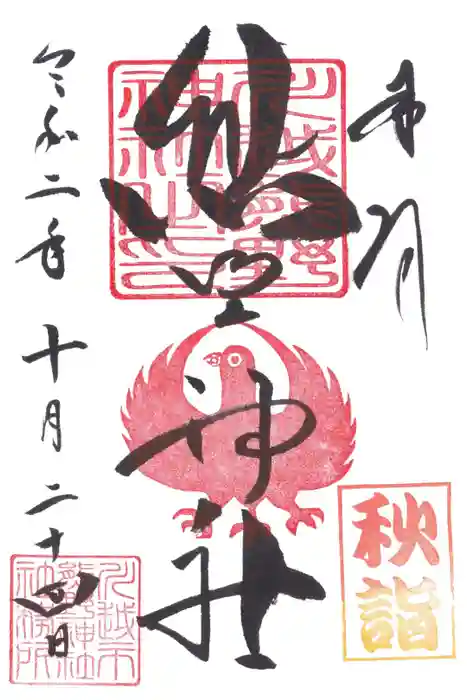 奉拝
川越熊野
神社之印
熊野神社
秋詣
令和二年十月二十四日
川越市
熊野神社